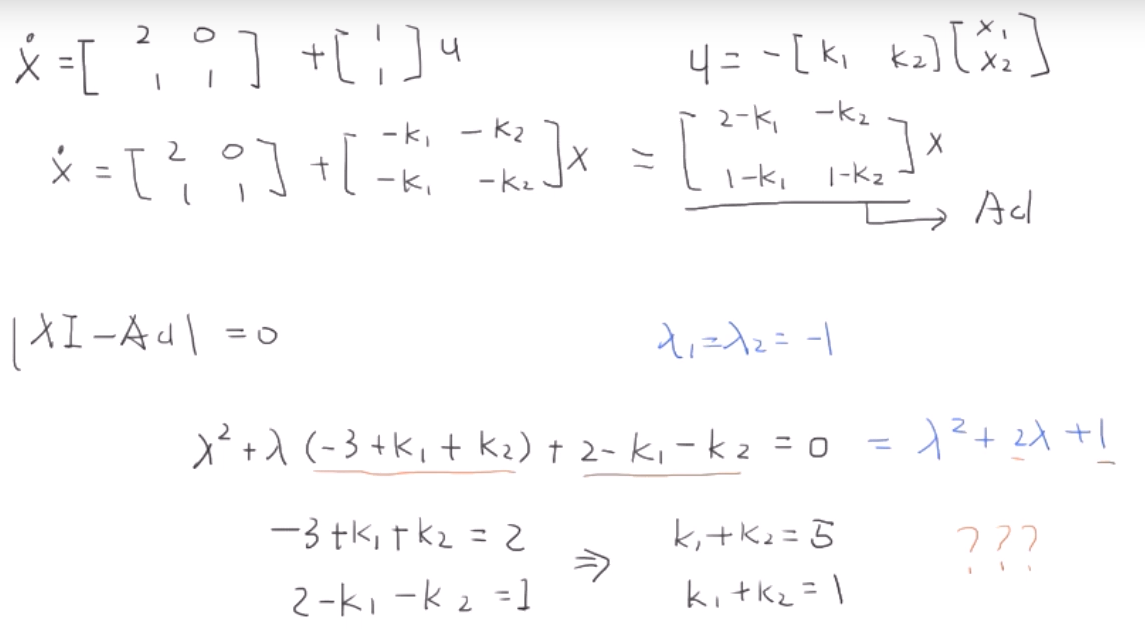 ẋ = [2 0; 1 1] + [1; 1] u    u = -[k₁ k₂][x₁; x₂]
ẋ = [2 0; 1 1] + [-k₁ -k₂; -k₁ -k₂]x = [2-k₁ -k₂; 1-k₁ 1-k₂]x
→ Acl
|λI - Acl| = 0    λ₁=λ₂= -1
λ² + λ (-3 + k₁ + k₂) + 2 - k₁ - k₂ = 0 = λ² + 2λ + 1
-3 + k₁ + k₂ = 2    k₁ + k₂ = 5    ???
⇒
2 - k₁ - k₂ = 1    k₁ + k₂ = 1